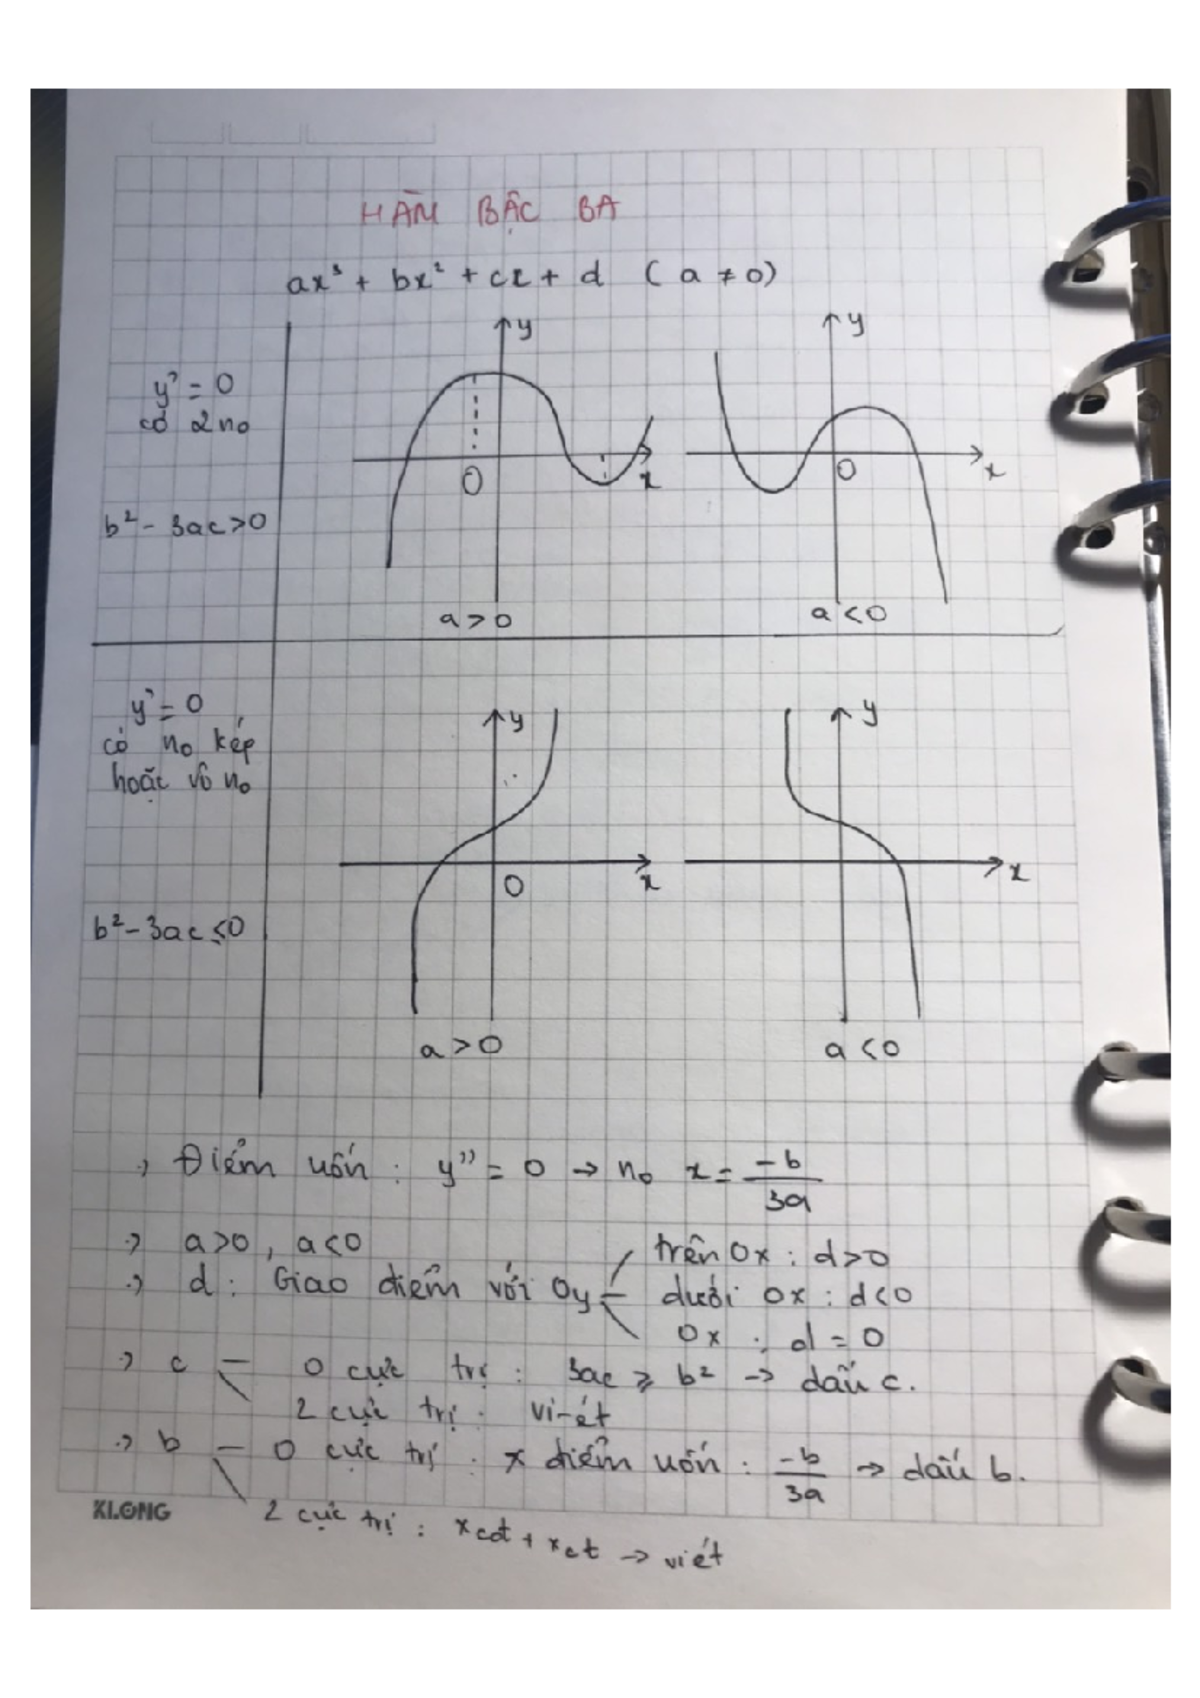 HÀM BẬC BA
ax³ + bx² + cx + d ( a ≠ 0)
y' = 0
có 2 no
b² - 3ac > 0
y
0
x
a > 0
y
0
x
a < 0
y' = 0
có no kép
hoặc vô no
b² - 3ac ≤ 0
y
0
x
a > 0
y
x
a < 0
Điểm uốn : y'' = 0 → no x = -b/3a
a>0 , a<0
d : Giao điểm với Oy
trên Ox : d>0
dưới Ox : d<0
Ox : d = 0
c — 0 cực trị : 3ac ≥ b² → dấu c.
2 cực trị : vi-ét
b — 0 cực trị : x điểm uốn : -b/3a → dấu b.
2 cực trị : xcđ + xct → viét
KLONG